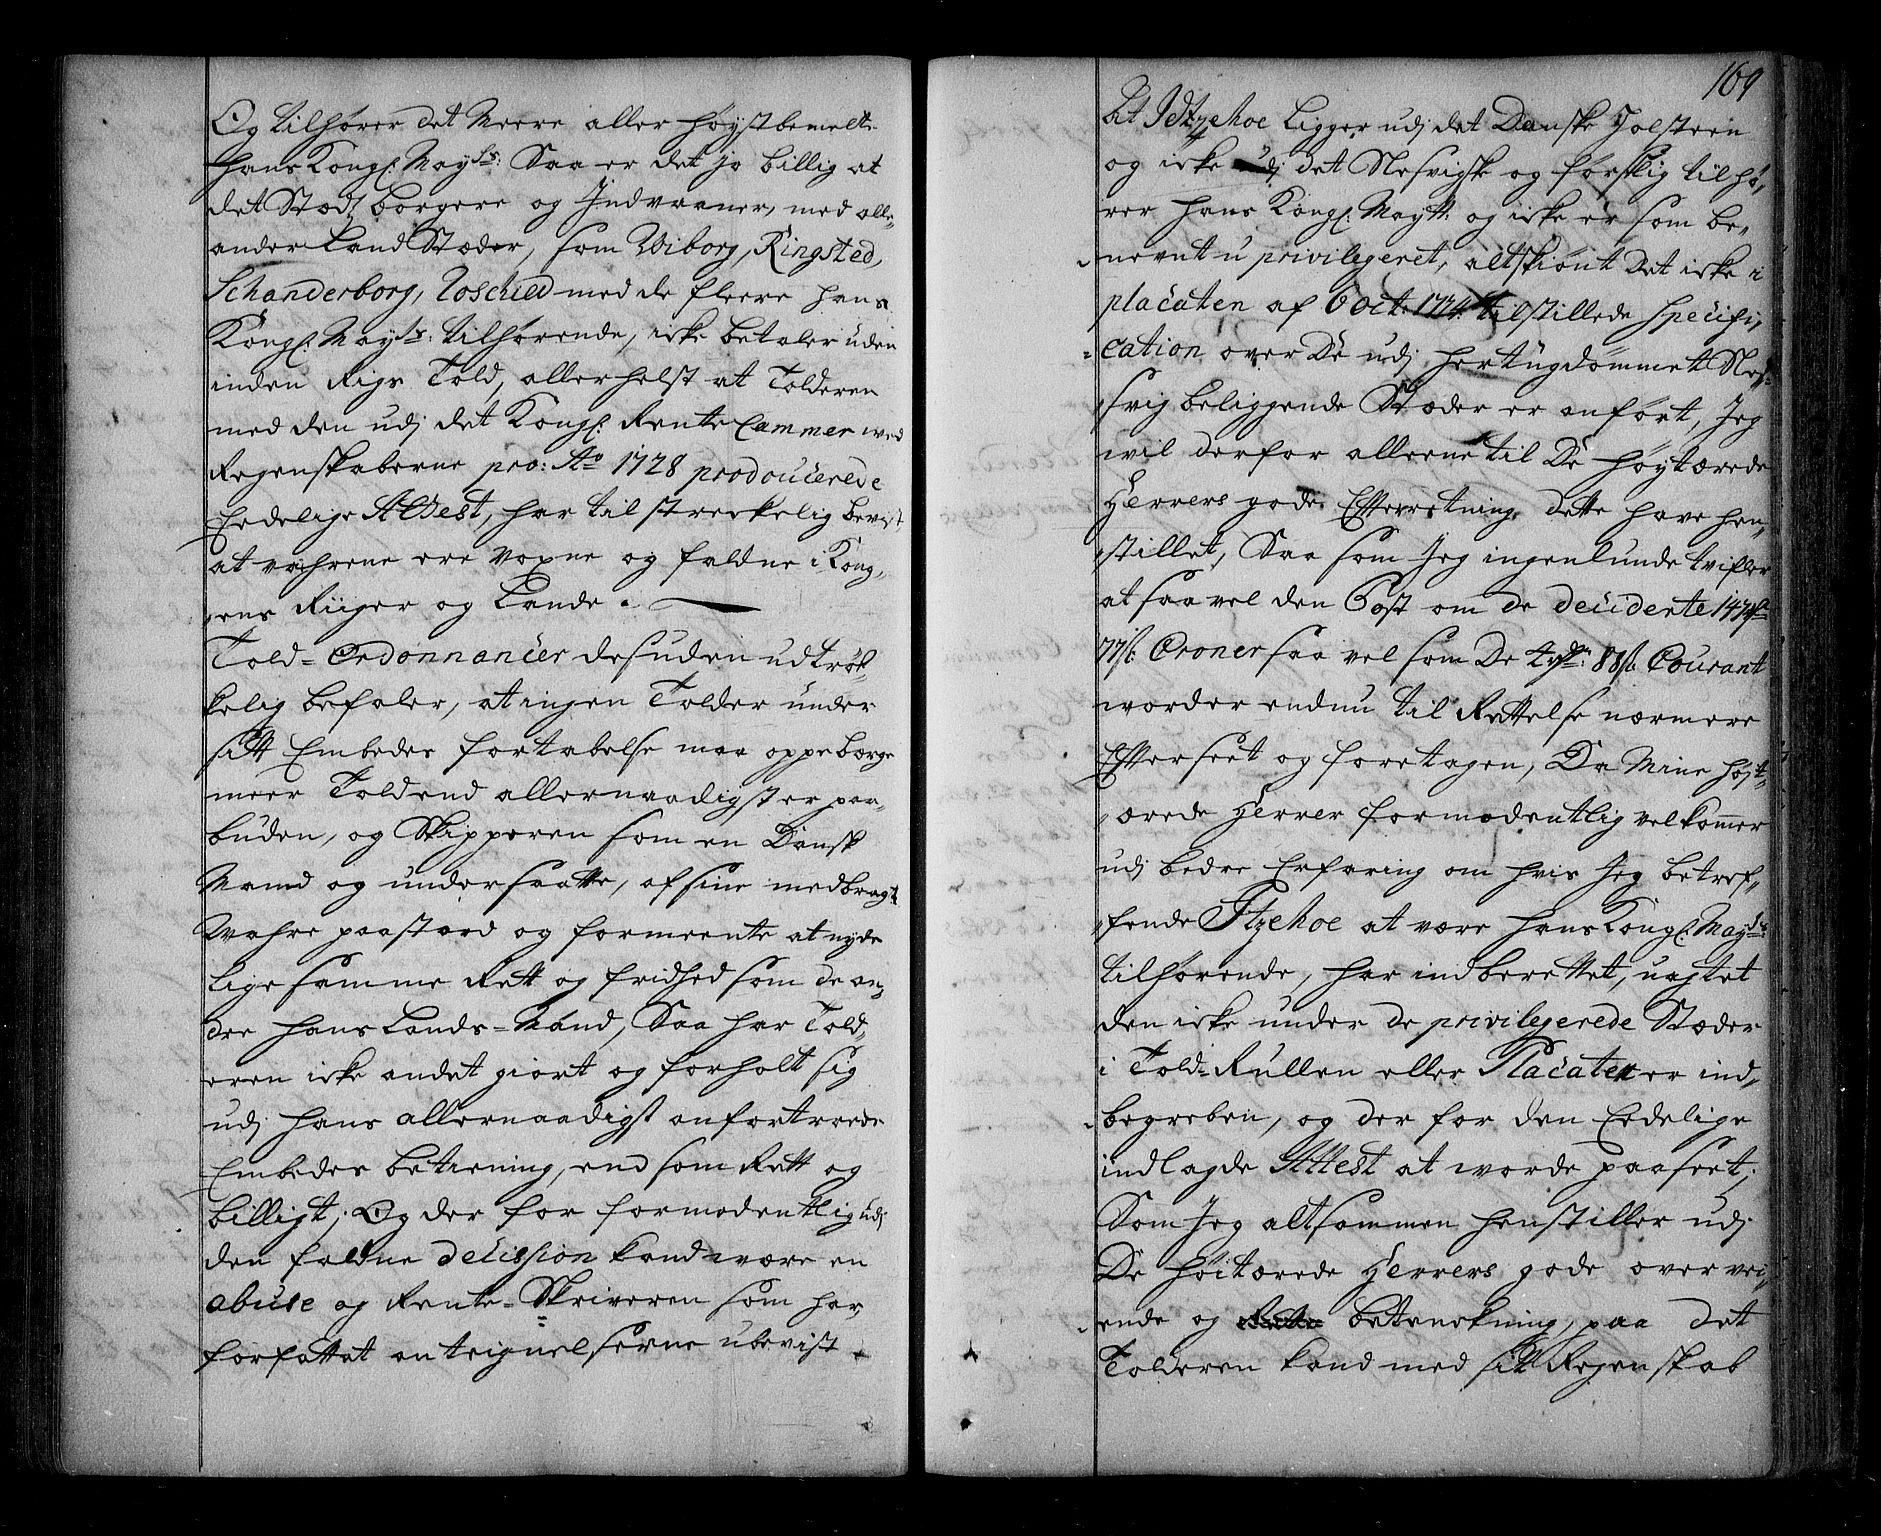 Og tilhører det Meere aller høystbemelte
hans Kongl. Mayts: Saa er det jo billig at
det Stæds borgere og Indvaaner, med alle
ander Land Stæder, som Wiborg, Ringsted,
Schanderborg, Roschild med de fleere hans
Kongl. Mayts: tilhørende, icke betaler uden
inden Rigs Told, allerhelst at Tolderen
med den udj det Kongl. Rente Cammer ved
Regenskaberne pro: Ao 1728 producerede
Eedelige Attest, har tilstreckelig beviist
at vahrene ere voxne og faldne i Kong,,
,,ens Riiger og Lande.
Told-Ordonnancer desuden udtrøk,,
kelig befaler, at ingen Tolder under
sitt Embedes fortabelse maa oppebørge
meer Told end allernaadigst er paa,,
buden, og Skipperen som en Dansk
Mand og undersaatte, af sine medbragt
Wahre paastoed og formeente at nyde
lige samme Rett og fridhed som de an,,
dre hans Lands-Mænd, Saa har Told,,
eren icke andet giort og forholt sig
udj hans allernaadigst anfortroede
Embedes betiening, end som Rett og
billigt; Og der for formodentlig udj
den faldne decission kand være en
abuse og Rente-Skriveren som har
forfattet antegnelserne ubevist
169
At Idtzehoe Ligger udj det Danske Holsteen
og icke udj det Slesvigske og førstlig tilhø,,
rer hans Kongl. Mayts: og icke er som be,,
nevnt u privilegeret, altskiønt det icke i
placaten af 6 oct: 1774 tilstillede specifi,,
cation over De udj hertugdømmet Sles,,
,,svig beliggende Stæder er anført, Jeg
wil derfor alleene til De høytærede
Herrers gode Efterretning dette have hen,,
,,stillet, Saa som Jeg ingenlunde tvifler
at saa vel den Post om de deciderte
Croner saa vel som De Courant
worder endnu til Rettelse nærmere
Efterseet og foretagen, Da Mine høyt,,
,,ærede Herrer formodentlig velkommer
udj bedre Erfaring om hvis Jeg betref,,
,,fende Itzehoe at være hans Kongl. Mayts:
tilhørende, har indberettet, uagtet
den icke under de privilegerede Stæder
i Told-Rullen eller Placaten er ind,,
begreben, og der for den Eedelige
indlagde Attest at worde paaseet;
Som Jeg altsammen henstiller udj
De høitærede Herrers gode overvei,,
ende og betenckning, paa det
Tolderen kand med sitt Regenskab